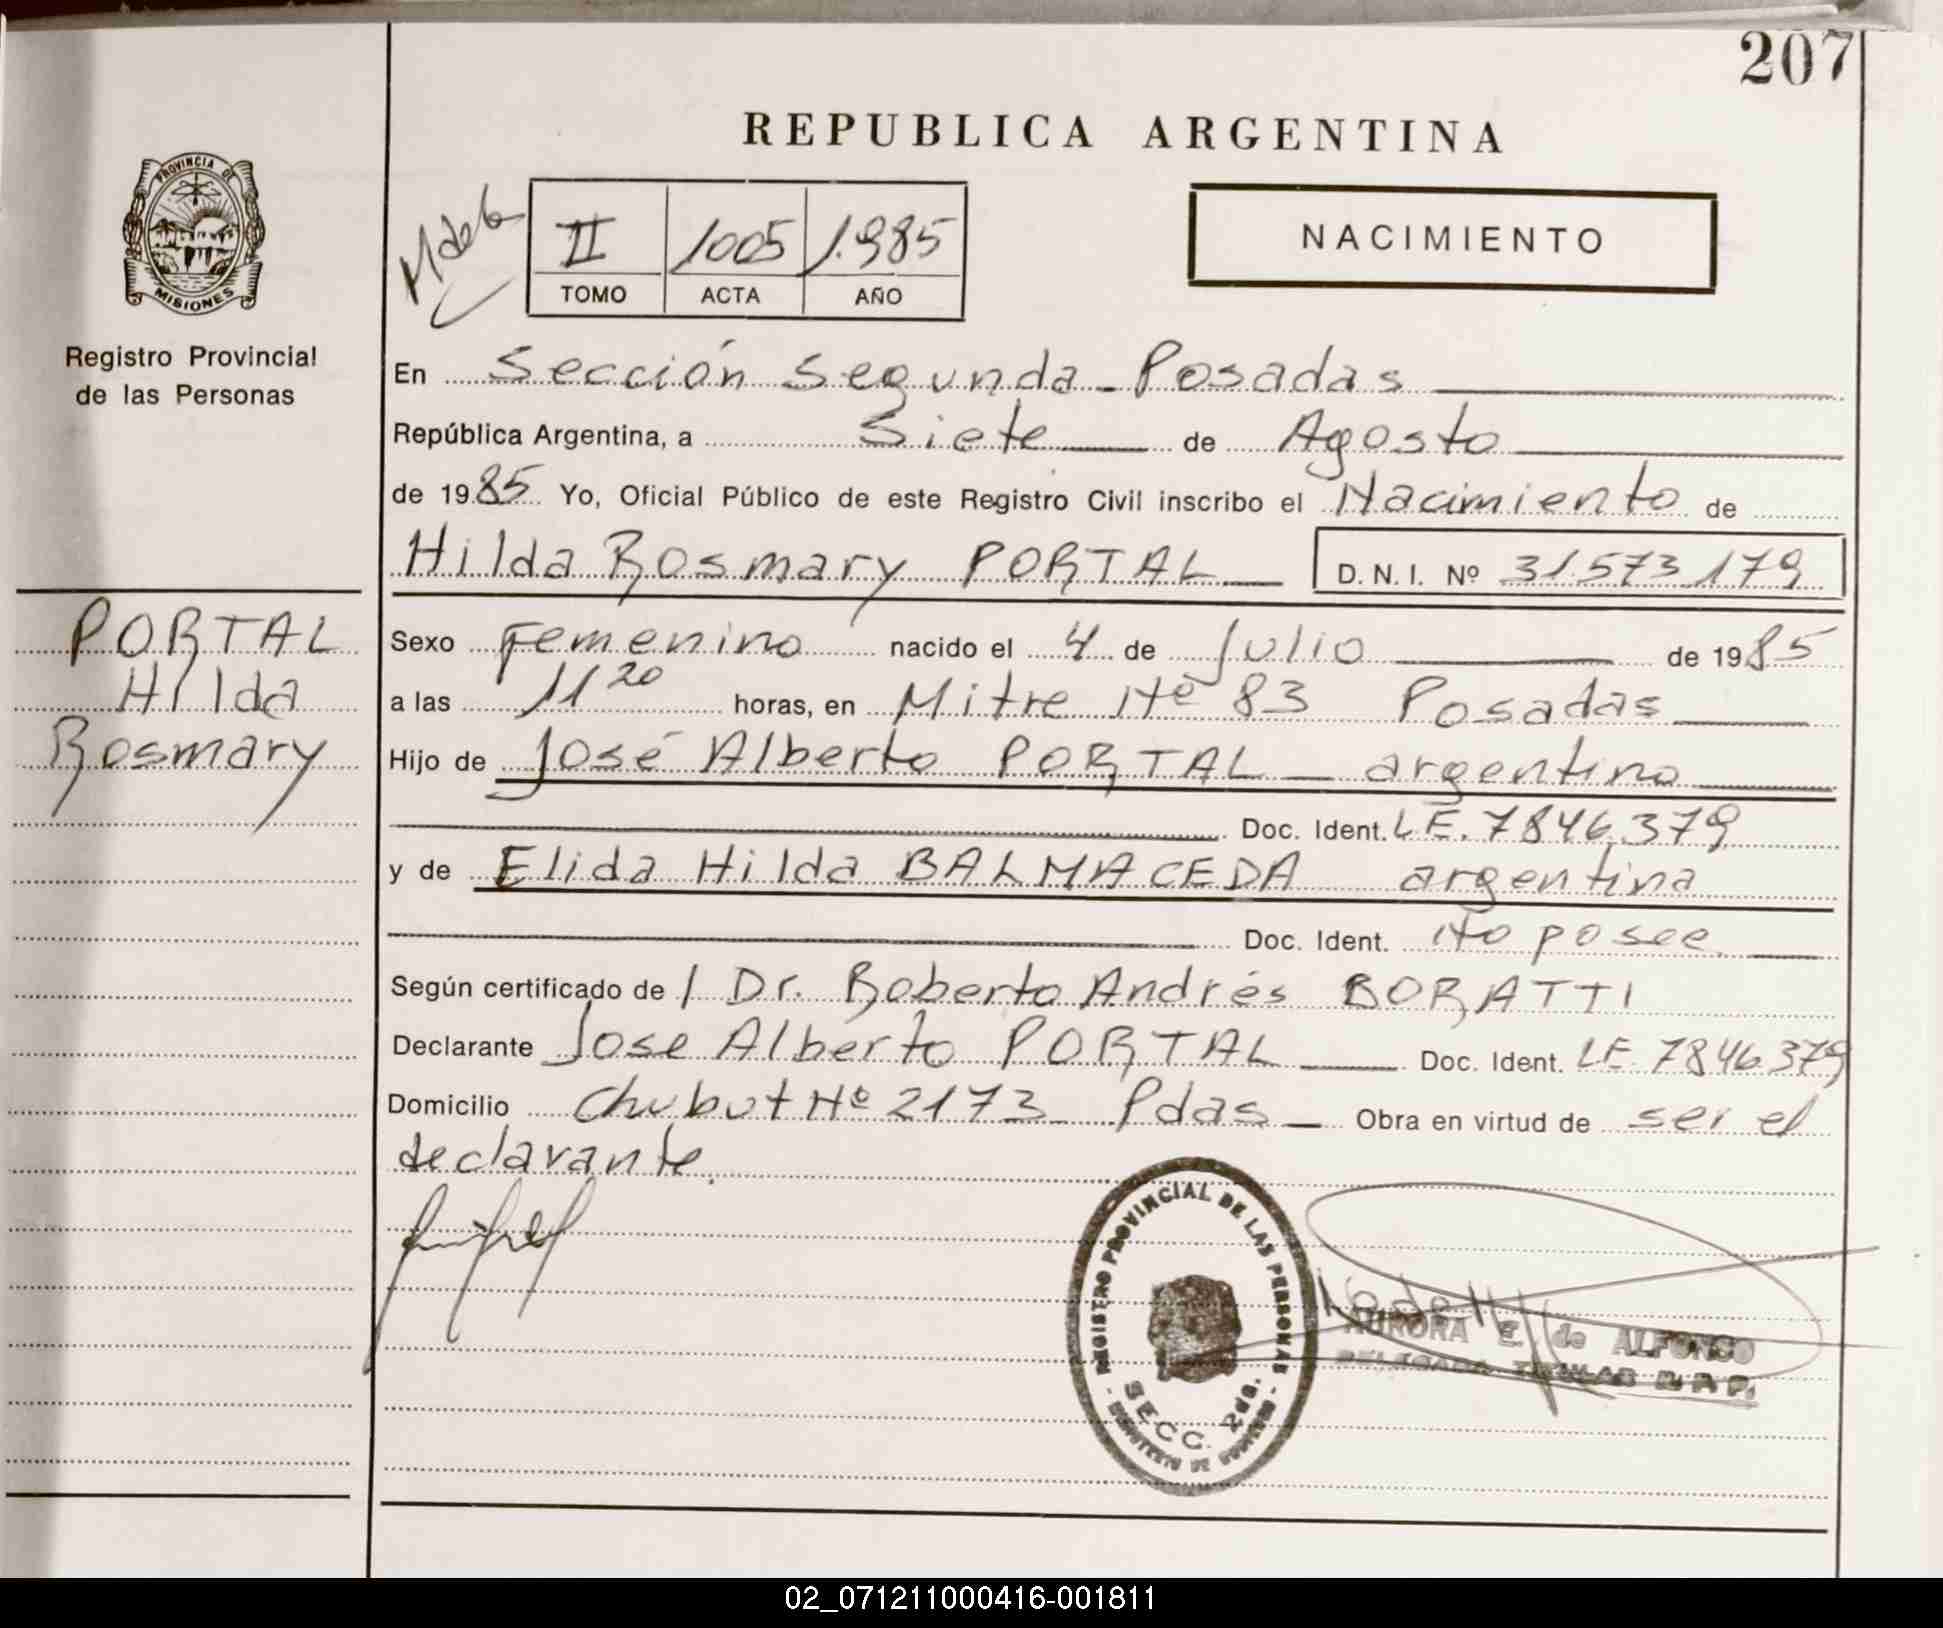 207
REPUBLICA ARGENTINA
PROVINCIA DE
MISIONES
Registro Provincial
de las Personas
II 1005 1.985
TOMO ACTA AÑO
NACIMIENTO
En Sección Segunda - Posadas
República Argentina, a Siete de Agosto
de 1985 Yo, Oficial Público de este Registro Civil inscribo el Nacimiento de
Hilda Rosmary PORTAL D.N.I. Nº 31.573.179
PORTAL
Hilda
Rosmary
Sexo Femenino nacido el 4 de Julio de 1985
a las 11 20 horas, en Mitre Nº 83 Posadas
Hijo de José Alberto PORTAL - argentino
Doc. Ident. L.E. 7.846.379
y de Elida Hilda BALMACEDA argentina
Doc. Ident. No posee
Según certificado de / Dr. Roberto Andrés BORATTI
Declarante Jose Alberto PORTAL Doc. Ident. LE 7846379
Domicilio Chubut Nº 2173 Pdas Obra en virtud de ser el
declarante.
REGISTRO PROVINCIAL DE LAS PERSONAS
SECC. 2da.
MINISTERIO DE GOBIERNO
AURORA E. de ALFONSO
DELEGADA TITULAR R. P. P.
02_071211000416-001811